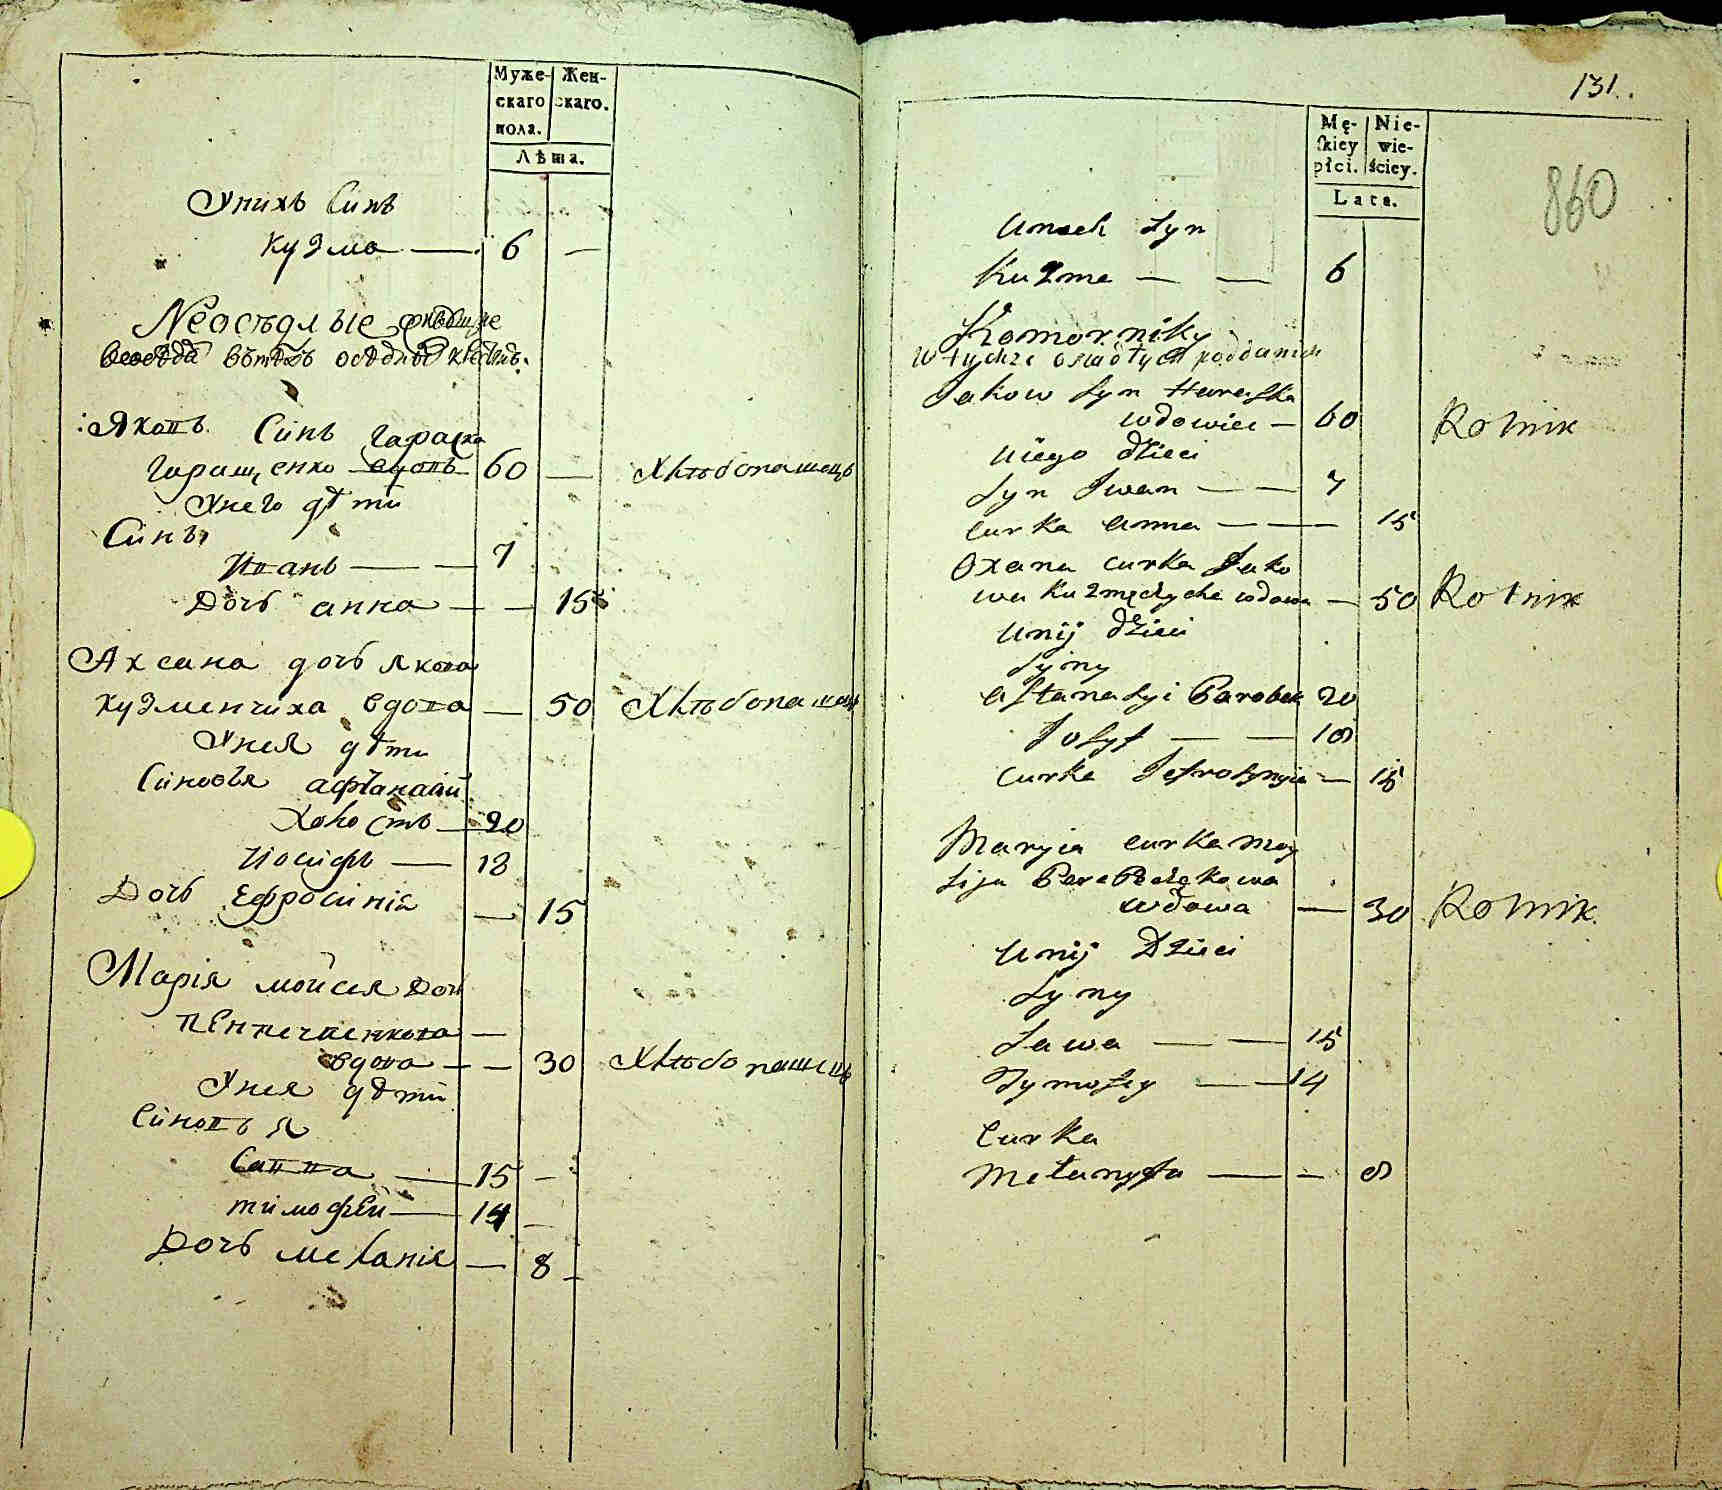 Муже-
скаго
пола.
Жен-
скаго.
Лѣта.
Унихъ Синъ
Кузма — 6 —
Неосѣдлые
вѣтѣхъ
Яковъ Синъ гараска
гаращенко вдовъ 60 — Хлѣбопашецъ
Унего дѣти
Синъ
Иванъ — — 7
Дочъ анна — — 15
Аксана дочъ якова
кузменчиха вдова — 50 Хлѣбопашецъ
Унея дѣти
Синовья афанасiй
Холостъ — 20
Иосифъ — 18
Дочъ Ефросинiя — 15
Марiя мойсея Доч
вдова — — 30 Хлѣбопашецъ
Унея дѣти
Синовья
Савва — 15 —
тимофей — 14 —
Дочъ меланiя — 8 —
131.
860
Mę-
skiey
płci.
Nie-
wie-
ściey.
Lata.
Unich Syn
Kuzma — — 6
Komorniky
w tychże osiadłych poddanych
Jakow Syn Haraska
wdowiec — 60 Rolnik
Uiego dzieci
Syn Iwan — — 7
Curka Anna — — 15
Oxana curka Jako
wa Kuzmęchycha wdowa — 50 Rolnik
Unij dzieci
Syny
Aftanasyi Parobek 20
Josyf — — 18
Curka Jefrosynyia — 15
Maryia curka Moy
sija
wdowa — 30 Rolnik
Unij Dzieci
Syny
Sawa — — 15
Tymofiy — — 14
Curka
Melanyia — — 8